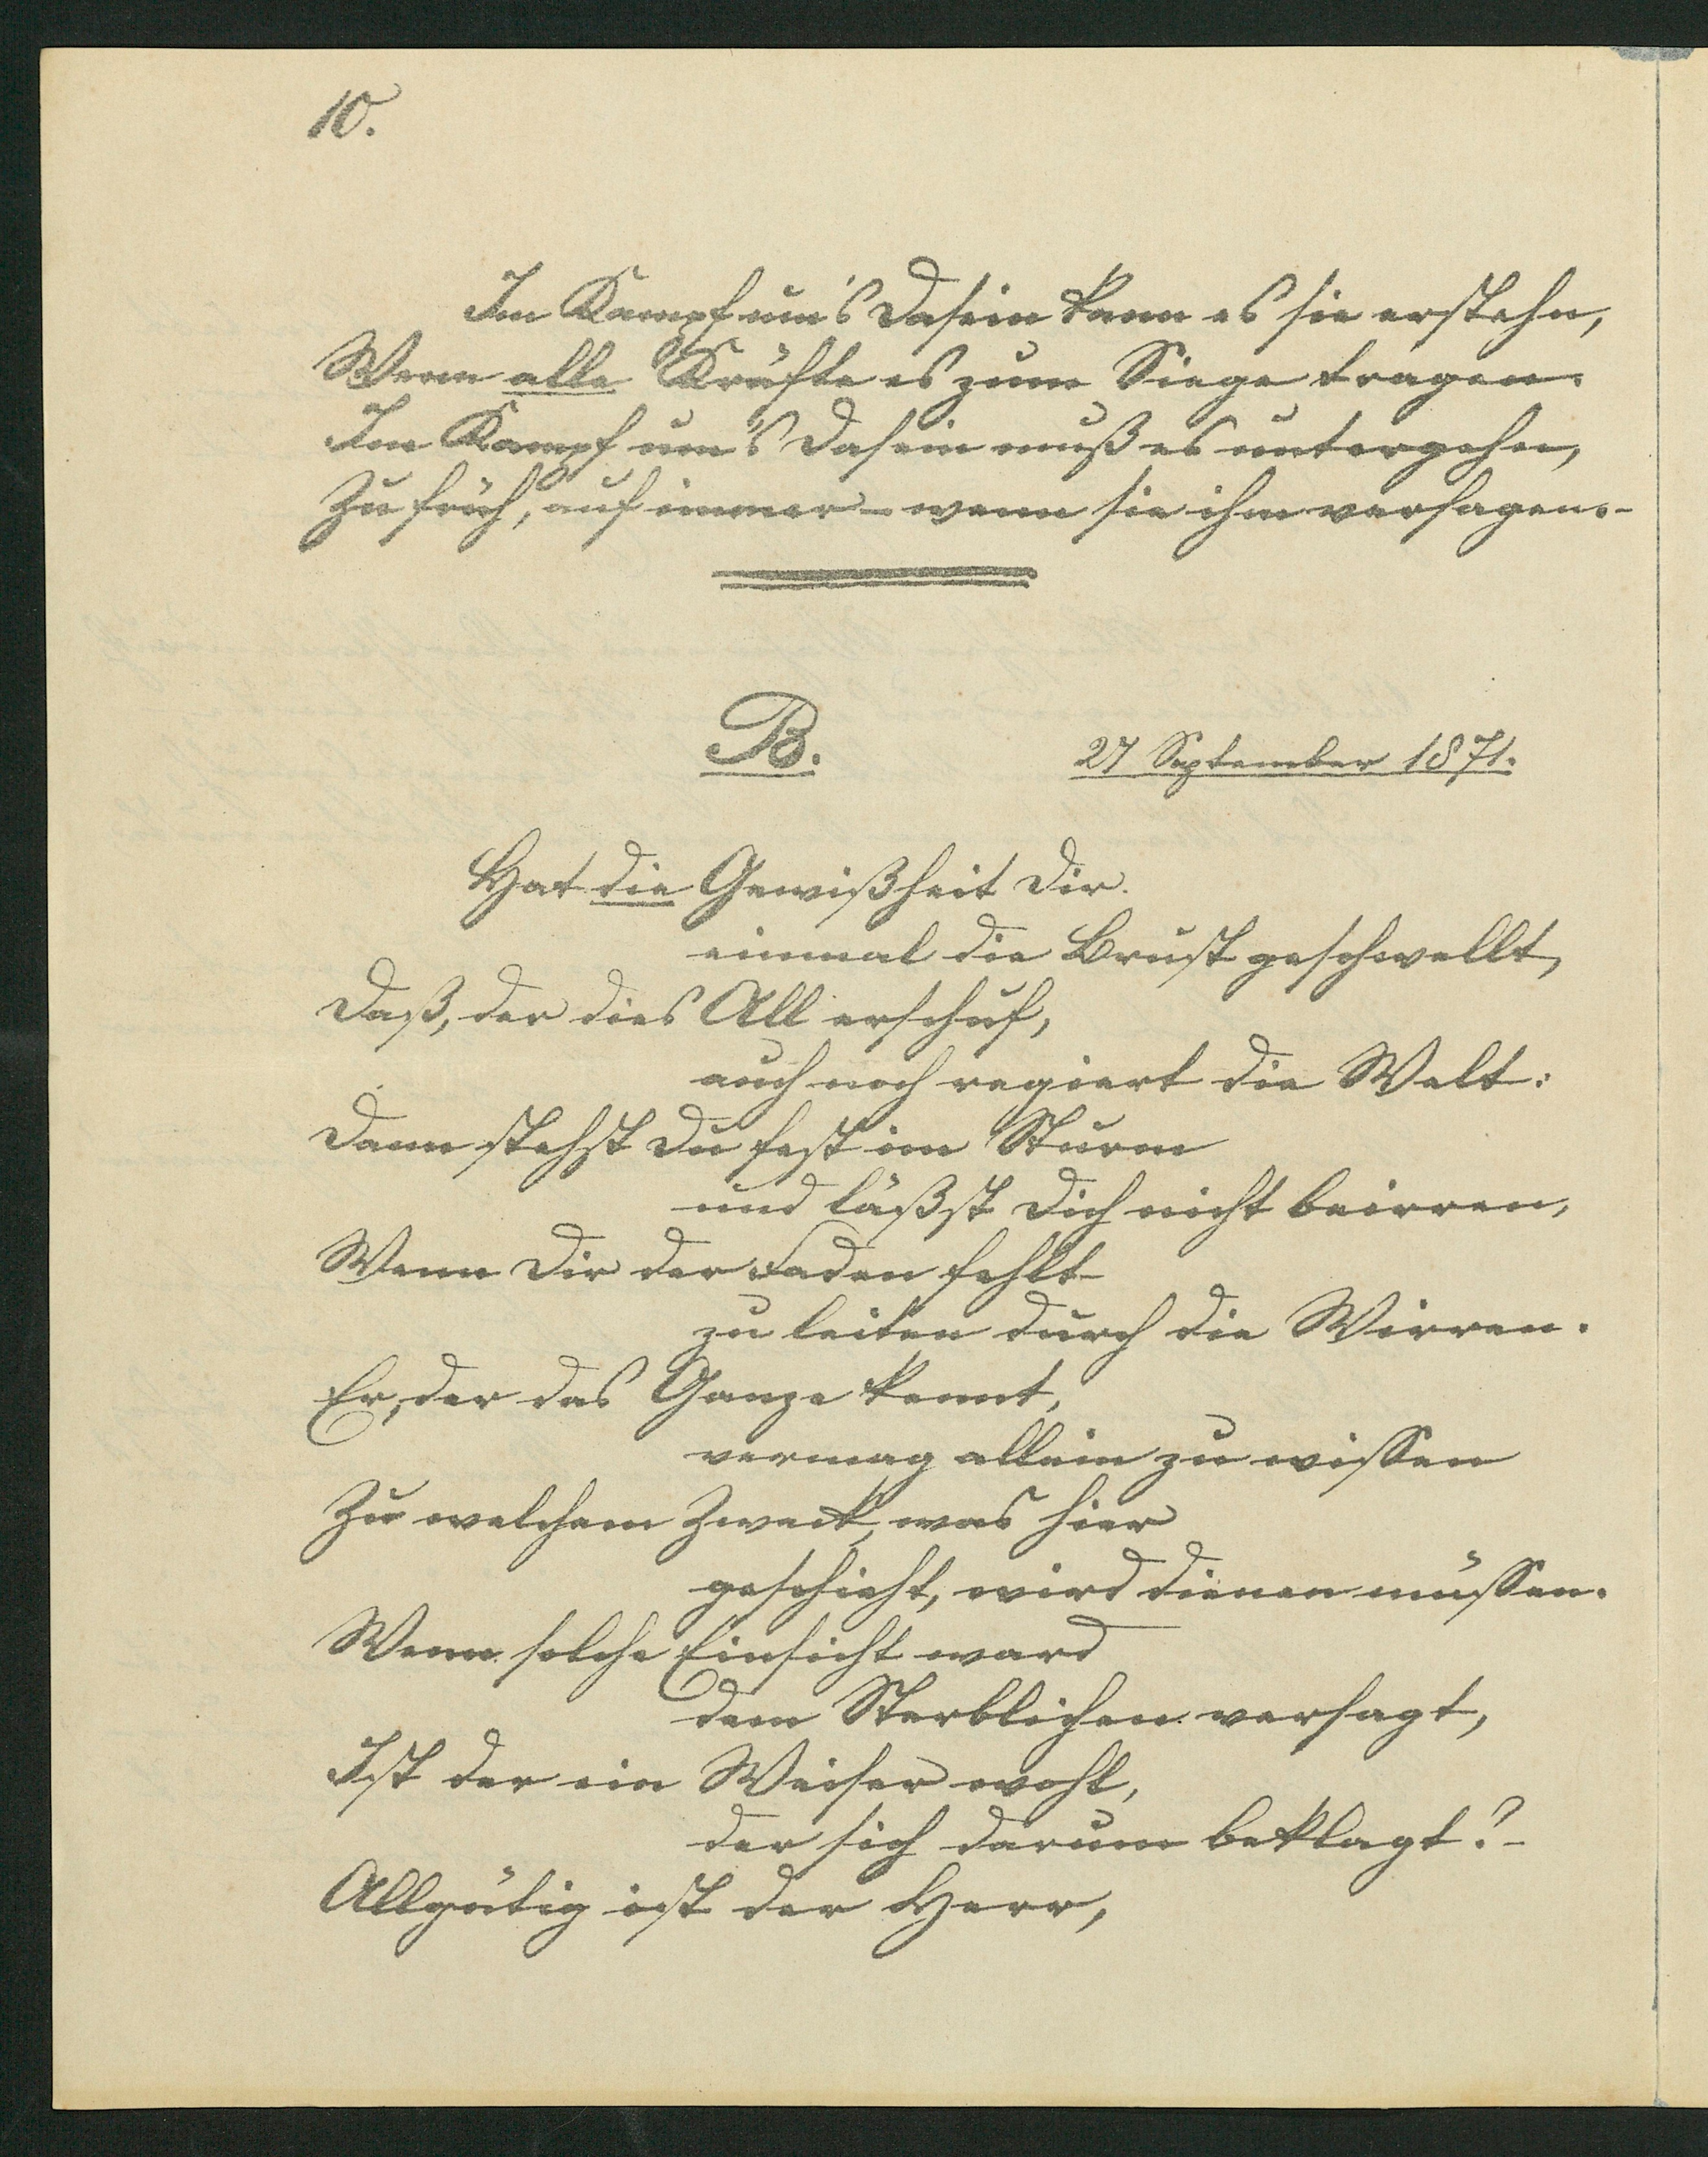 10.
Im Kampf um's Dasein kann es sie erstehn,
Wenn alle Kräfte es zum Siege tragen.
Im Kampf um's Dasein muß es untergehen,
Zu früh, auf immer – wenn sie ihm versagen. –
B.
27 September 1871.
Hat die Gewißheit Dir
einmal die Brust geschwellt,
Daß, der dies All erschuf,
auch noch regiert die Welt:
Dann stehst Du fest im Sturm
und läßst Dich nicht beirren,
Wenn Dir der Faden fehlt
zu leiten durch die Wirren.
Er, der das Ganze kennt,
vermag allein zu wissen
Zu welchem Zweck, was hier
geschieht, wird dienen müssen.
Wenn solche Einsicht ward
dem Sterblichen versagt,
Ist der ein Weiser wohl,
der sich darum beklagt? –
Allgütig ist der Herr,